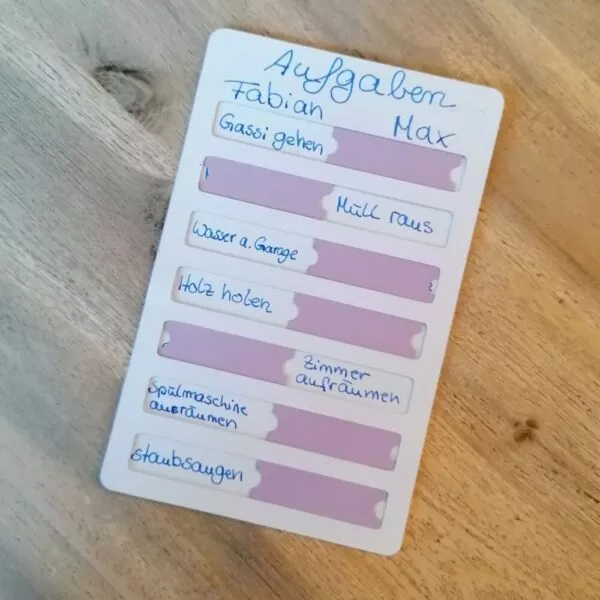 Aufgaben
Fabian
Max
Gassi gehen
Müll raus
Wasser a. Garage
Holz holen
Zimmer
aufräumen
Spülmaschine
ausräumen
staubsaugen